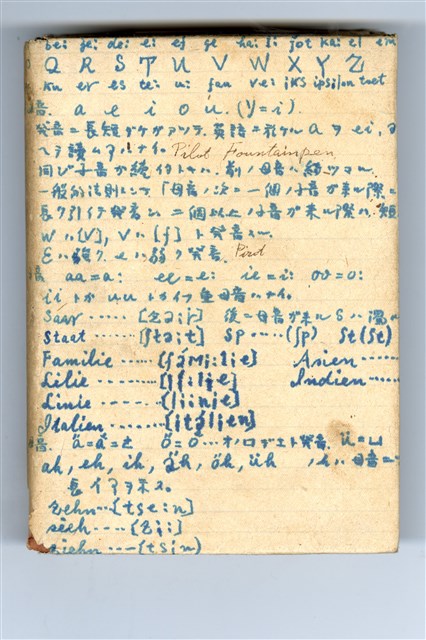 be: ge: de: ei ef ge ha: i: jot ka: el em
Q R S T U V W X Y Z
ku er es te: u: fau ve: iks ipsilon tset
音. a e i o u. (y=i).
発音ニ長短ダケガアツテ, 英語ニ於ケルaヲei,
ヘヲ読ムヿハナイ. Pilot Fountainpen
同ジ子音が続イタトキハ,前ノ母音ハ
一般的法則トシテ「母音ノ次ニ一個ノ子音が来ル際ニ
長ク引イテ発音シ 二個以上ノ子音が来ル際ハ, 短
wハ[v], vハ[f]ト発音
Eハ強ク, eハ弱ク発音. Pirol
音 aa=a: ee=e: ie=i: oo=o:
ii トカ uu トカイフ重母音ハナイ.
Saar ..... [za:r] 後ニ母音が来ルSハ濁
Staat ..... [ʃta:t] sp .....(ʃp) St(ʃt)
Familie ..... [fami:lie] Asien ......
Lilie ........ [li:lie] Indien ......
Linie ....... [li:nie]
Italien ........ [ita:lien]
音. ä=a=e ö=o ... オノロデエト発音. ü=u
ah, eh, ih, äh, öh, üh , ハ母音ニ
長イヿヲ示ス.
zehn....[tse:n]
sieh.....[zi:]
ziehn ....[tsi:n)